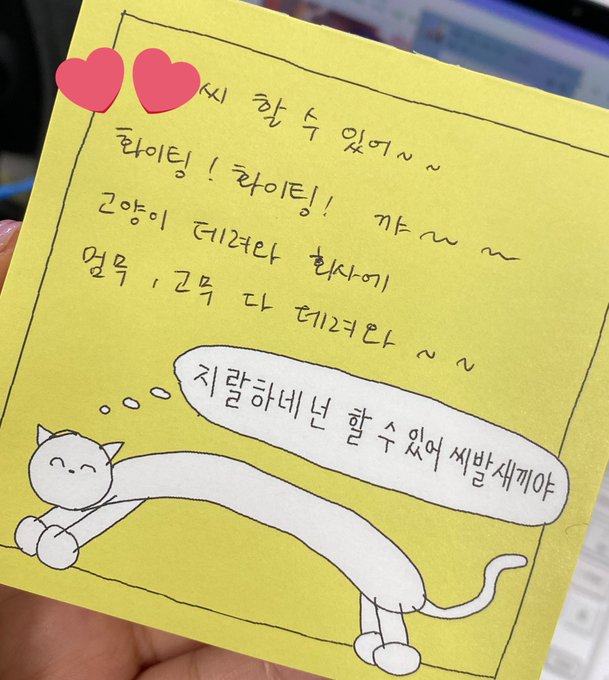 씨 할 수 있어~~
화이팅! 화이팅! 꺄~~~
고양이 데려와 회사에
엄무, 고무 다 데려와~~
지랄하네 넌 할 수 있어 씨발새끼야